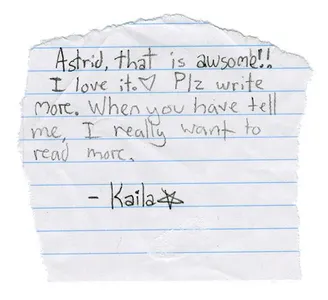 Astrid, that is awsome!!
I love it.♡ Plz write
more. When you have tell
me, I really want to
read more.
- Kaila☆